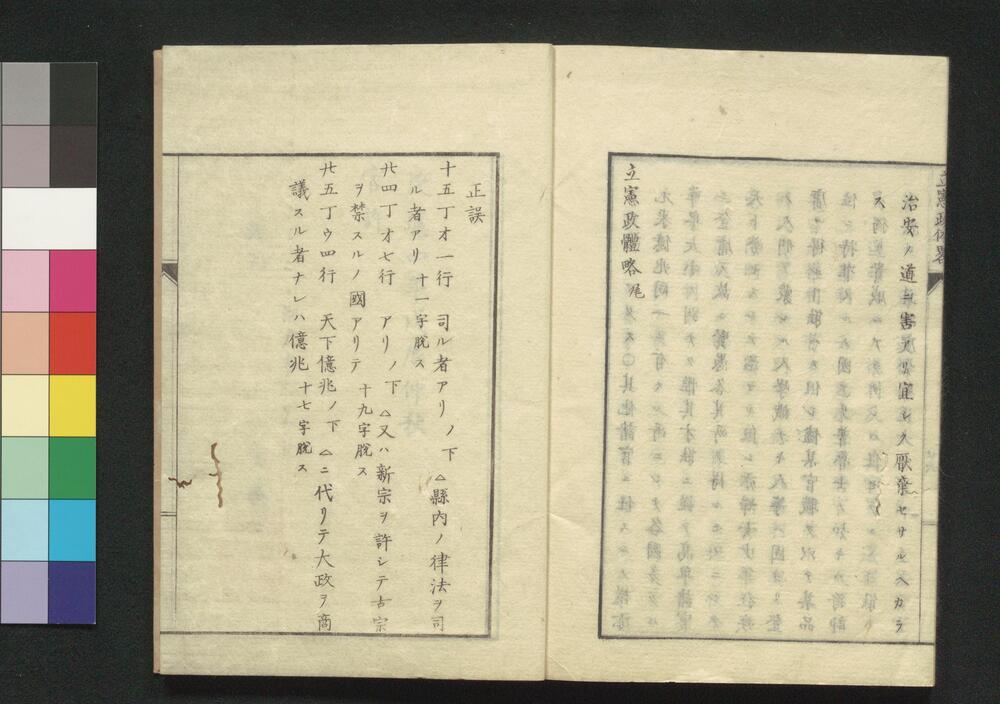 立憲政体畧
治安ノ道ニ害アル冝シク厭棄セサルヘカラ
ス
立憲政體略尾
正誤
十五丁オ一行 司ル者アリノ下 △縣内ノ律法ヲ司
ル者アリ 十一字脱ス
廿四丁オ七行 アリノ下 △又ハ新宗ヲ許シテ古宗
ヲ禁スルノ國アリテ 十九字脱ス
廿五丁ウ四行 天下億兆ノ下 △ニ代リテ大政ヲ商
議スル者ナレハ億兆 十七字脱ス